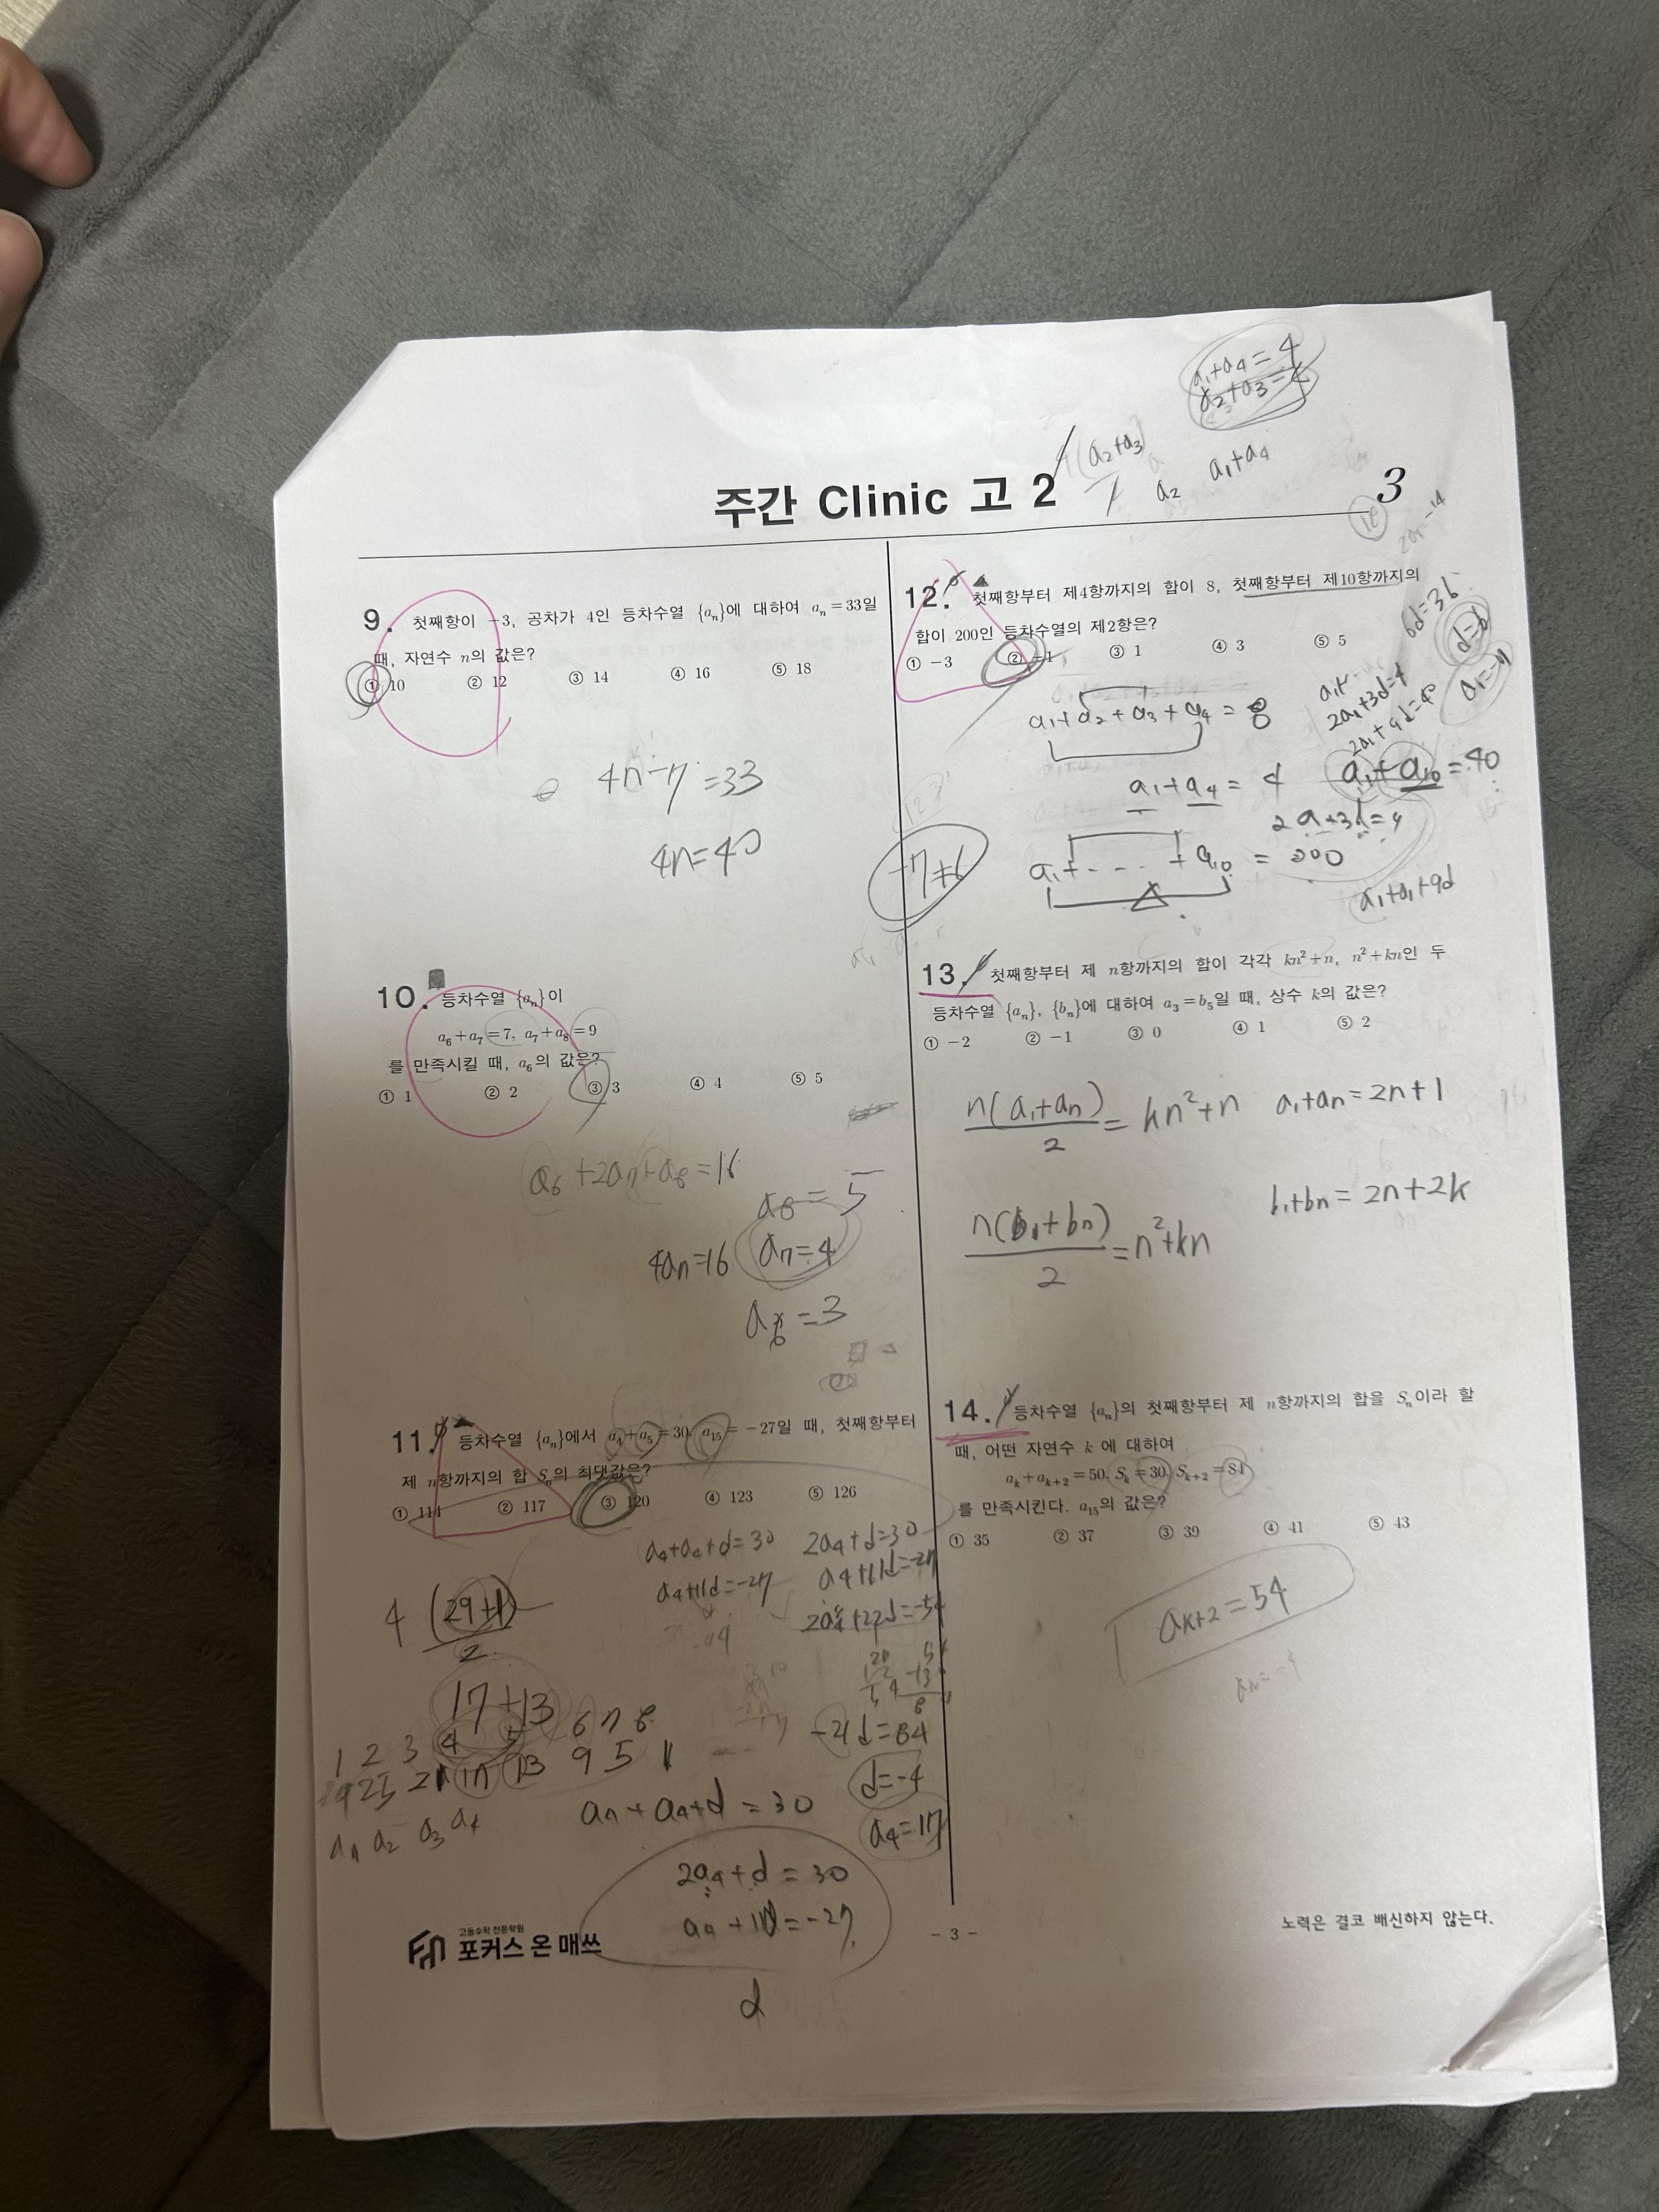 a₁+a₄=4
a₂+a₃=4
(a₂+a₃)
a₂
a₁+a₄
주간 Clinic 고 2
3
9. 첫째항이 -3, 공차가 4인 등차수열 {aₙ}에 대하여 aₙ=33일
때, 자연수 n의 값은?
① 10 ② 12 ③ 14 ④ 16 ⑤ 18
4n-7=33
4n=40
10. 등차수열 {aₙ}이
a₆+a₇=7, a₇+a₈=9
를 만족시킬 때, a₆의 값은?
① 1 ② 2 ③ 3 ④ 4 ⑤ 5
a₆+2a₇+a₈=16
a₈=5
4a₇=16 a₇=4
a₆=3
11. 등차수열 {aₙ}에서 a₄+a₅=30, a₁₅=-27일 때, 첫째항부터
제 n항까지의 합 Sₙ의 최댓값은?
① 114 ② 117 ③ 120 ④ 123 ⑤ 126
a₄+a₄+d=30 2a₄+d=30
a₄+11d=-27 a₄+11d=-27
2a₄+22d=-54
4(29+1)
2
17+13
6 7 8
1 2 3 4 5
29 25 21 17 13 9 5 1
a₁ a₂ a₃ a₄
-21d=84
d=-4
a₄=17
a₄+a₄+d=30
2a₄+d=30
a₄+11d=-27
d
12. 첫째항부터 제4항까지의 합이 8, 첫째항부터 제10항까지의
합이 200인 등차수열의 제2항은?
① -3 ② -1 ③ 1 ④ 3 ⑤ 5
6d=36
d=6
a₁=-7
a₁+a₂+a₃+a₄=8
2a₁+3d=4
2a₁+9d=40
a₁+a₄=4 a₁+a₁₀=40
2a₁+3d=4
a₁+----+a₁₀=200
a₁+a₁+9d
-7+6
13. 첫째항부터 제 n항까지의 합이 각각 kn²+n, n²+kn인 두
등차수열 {aₙ}, {bₙ}에 대하여 a₃=b₅일 때, 상수 k의 값은?
① -2 ② -1 ③ 0 ④ 1 ⑤ 2
n(a₁+aₙ)/2=kn²+n a₁+aₙ=2n+1
n(b₁+bₙ)/2=n²+kn b₁+bₙ=2n+2k
14. 등차수열 {aₙ}의 첫째항부터 제 n항까지의 합을 Sₙ이라 할
때, 어떤 자연수 k에 대하여
aₖ+aₖ₊₂=50, Sₖ=30, Sₖ₊₂=84
를 만족시킨다. a₁₅의 값은?
① 35 ② 37 ③ 39 ④ 41 ⑤ 43
aₖ₊₂=54
고등수학 전문학원
포커스 온 매쓰
- 3 -
노력은 결코 배신하지 않는다.